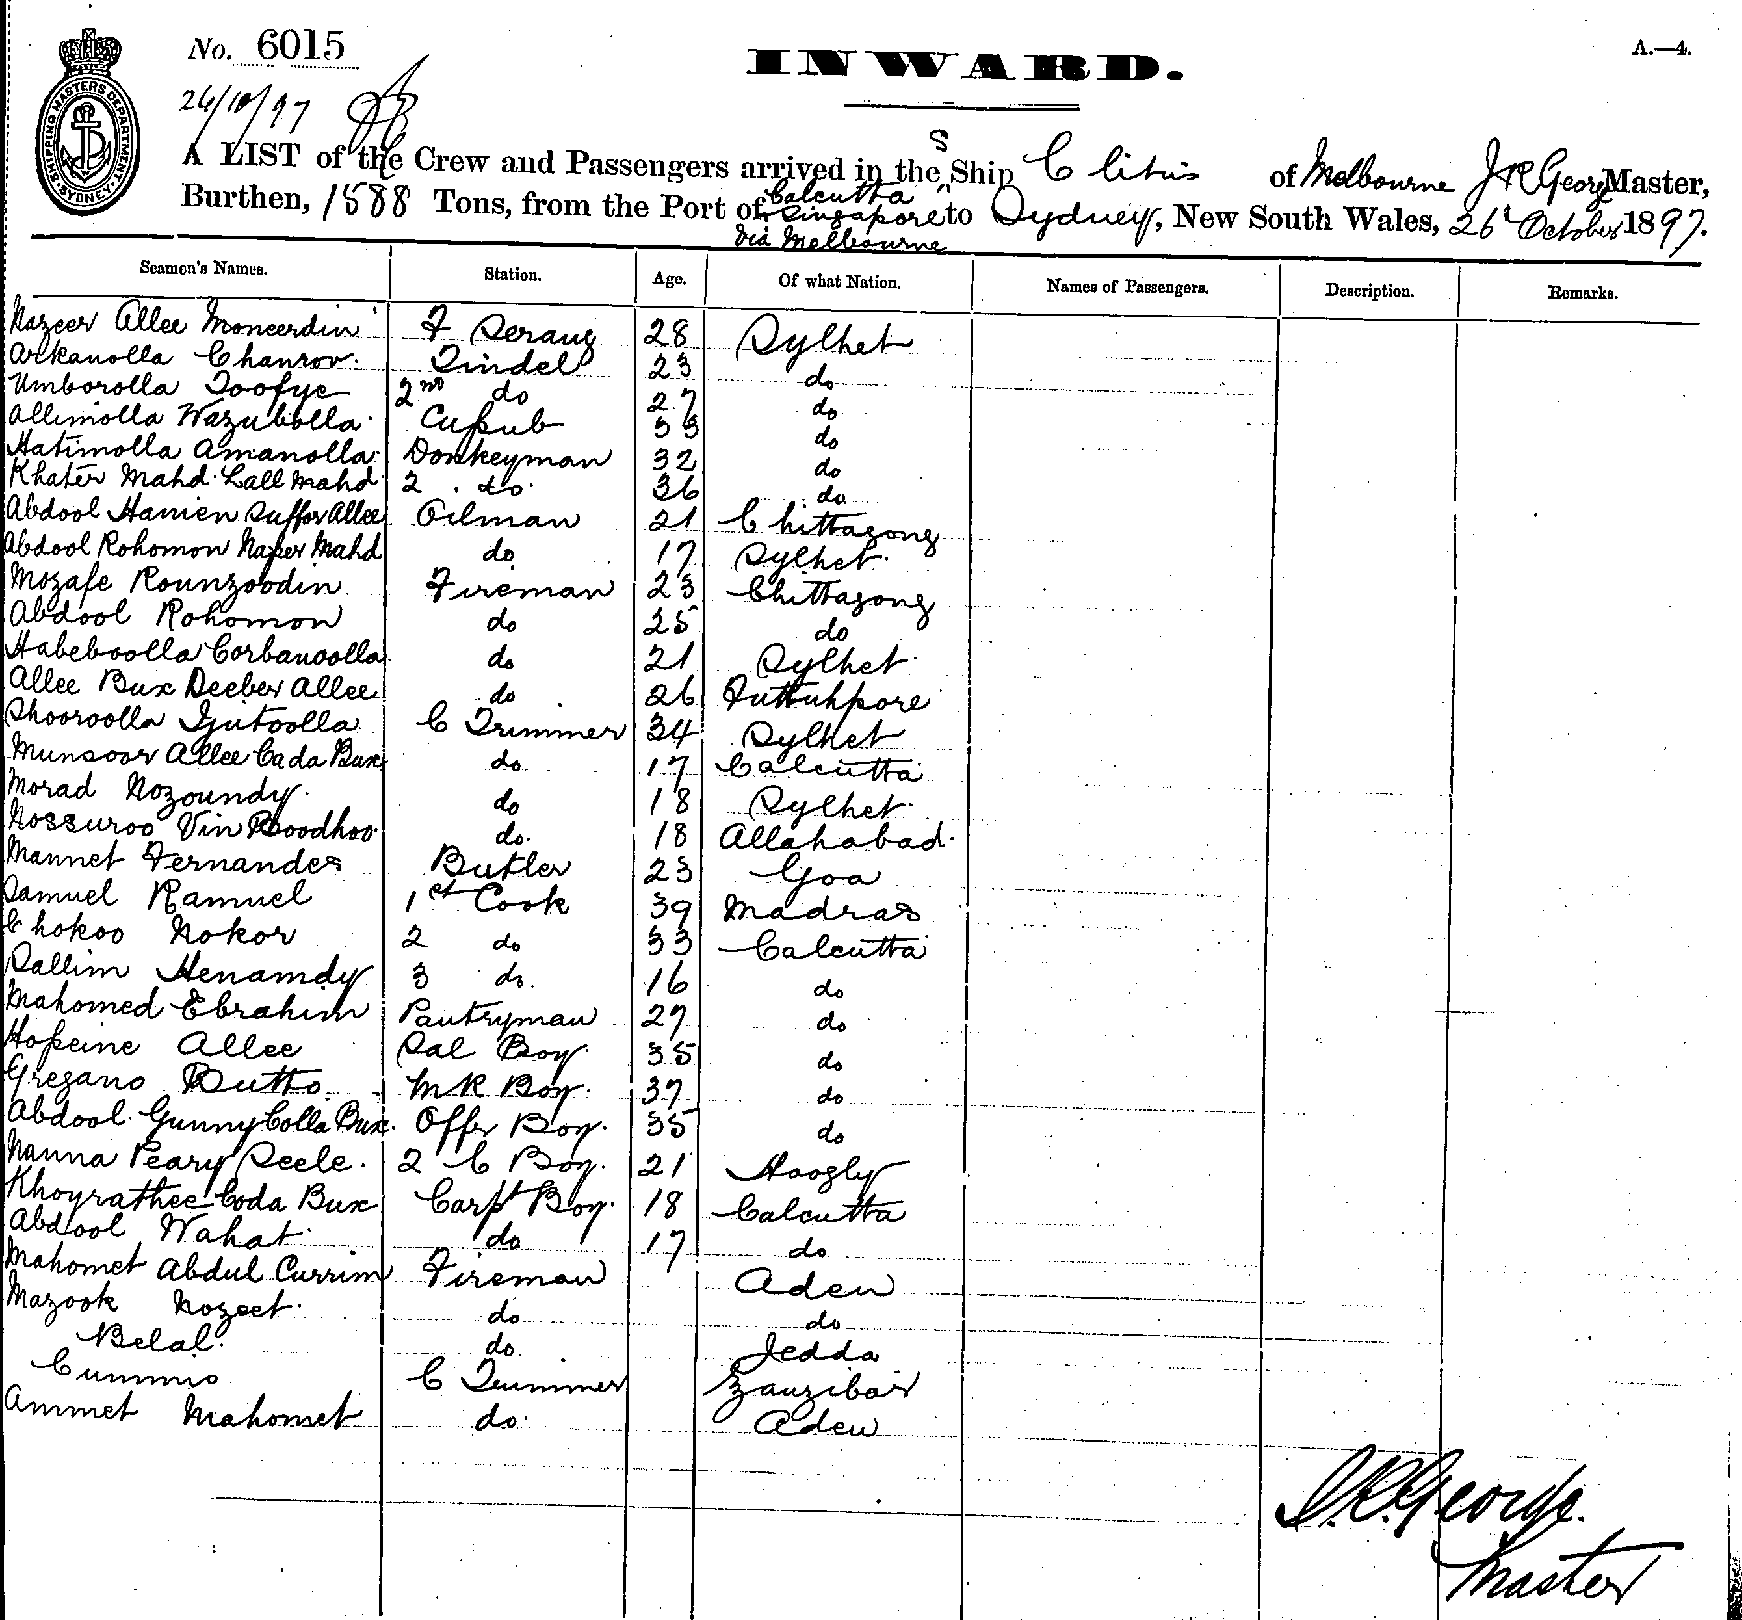 No. 6015
INWARD.
A.—4.
26/10/97
SHIPPING MASTERS DEPARTMENT SYDNEY
A LIST of the Crew and Passengers arrived in the S Ship Clitus of Melbourne J R George Master,
Burthen, 1588 Tons, from the Port of Calcutta Singapore to Sydney, New South Wales, 26t October 1897.
via Melbourne
Seamen's Names. Station. Age. Of what Nation. Names of Passengers. Description. Remarks.
Nazeer Allee Moneerdin F Serang 28 Sylhet
Arkanolla Chanrov. Tindel 23 do
Umborolla Toofye 2nd do 27 do
Allimolla Wazubolla Cussub 33 do
Hatimolla Amanolla Donkeyman 32 do
Khater Mahd Lall Mahd 2 do 36 do
Abdool Hamen Suffor Allee Oilman 21 Chittagong
Abdool Rohomon Nazer Mahd do 17 Sylhet
Mozafe Rounzoodin Fireman 23 Chittagong
Abdool Rohomon do 25 do
Habeboolla Corbanoolla do 21 Sylhet
Allee Bux Deeber Allee do 26 Futtuhpore
Shooroolla Izutoolla C Trimmer 34 Sylhet
Munsoor Allee Cada Bux do 17 Calcutta
Morad Nozoundy do 18 Sylhet
Nossuroo Vin Boodhoo do. 18 Allahabad
Mannet Fernandes Butler 23 Goa
Samuel Ramuel 1st Cook 39 Madras
Chokoo Nokor 2 do 33 Calcutta
Sallim Henamdy 3 do. 16 do
Mahomed Ebrahim Pantryman 27 do
Hossine Allee Sal Boy 35 do
Gregano Butto M R Boy. 37 do
Abdool Gunny Colla Bux Offer Boy. 35 do
Nanna Peary Seele. 2 C Boy. 21 Hoogly
Khoyrathee Coda Bux Carpt Boy. 18 Calcutta
Abdool Wahat do 17 do
Mahomet Abdul Currim Fireman Aden
Mazook Nozeet. do do
Belal. do. Jedda
Cummio C Trimmer Zanzibar
Ammet Mahomet do Aden
J.R. George.
Master